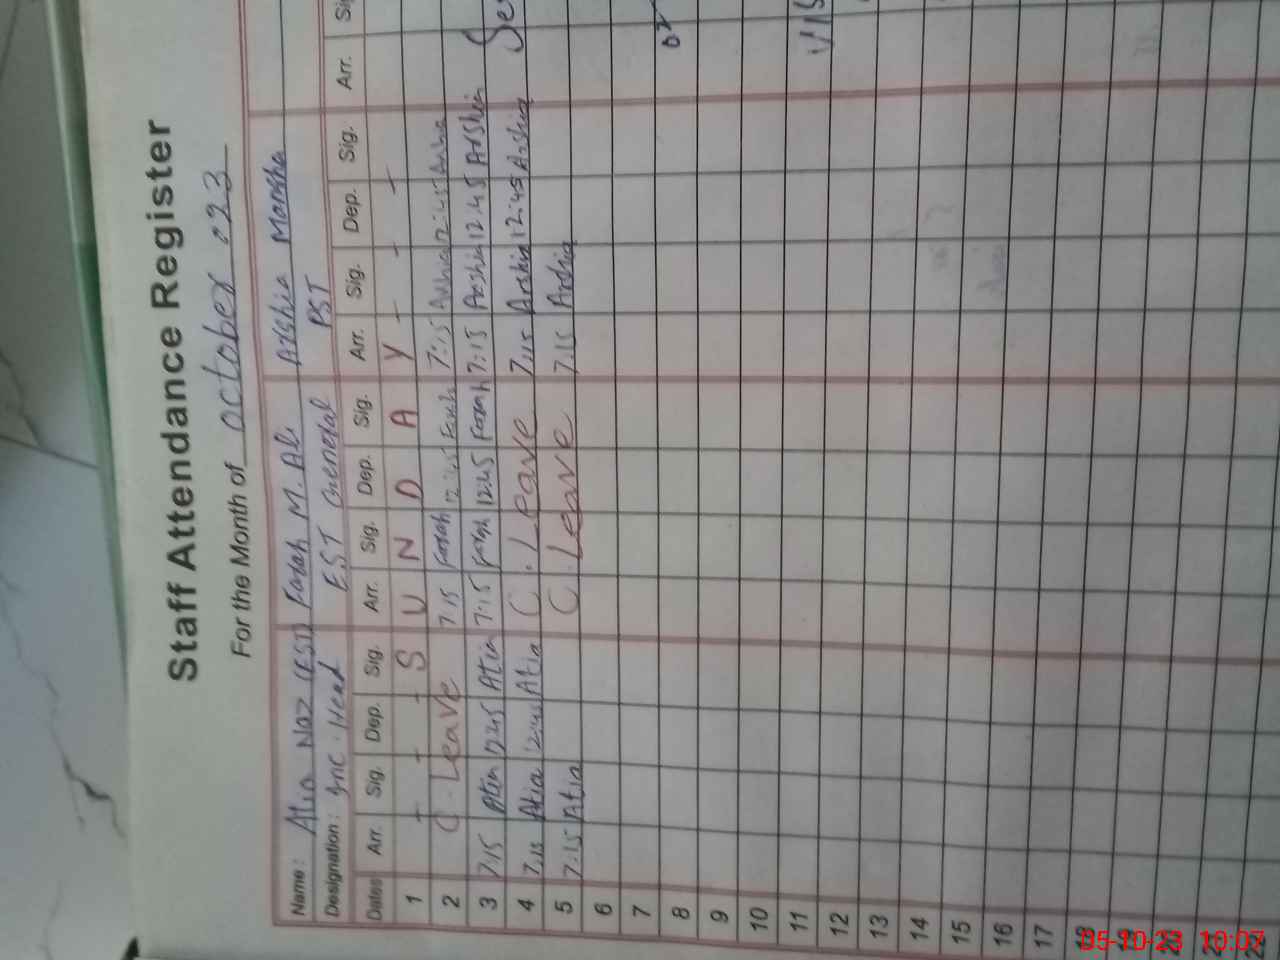 Staff Attendance Register
For the Month of October 023
Name: Atia Naz (EST) Farah M. Ali Arshia Mansha
Designation: Inc. Head EST General PST
Dates Arr. Sig. Dep. Sig. Arr. Sig. Dep. Sig. Arr. Sig. Dep. Sig. Arr.
1 - - - S U N D A Y - - -
2 C. Leave 7:15 Farah 12:45 Farah 7:15 Arshia 12:45 Arshia
3 7:15 Atia 12:45 Atia 7:15 Farah 12:45 Farah 7:15 Arshia 12:45 Arshia
4 7:15 Atia 12:45 Atia C. Leave 7:15 Arshia 12:45 Arshia
5 7:15 Atia C. Leave 7:15 Arshia
6
7
8
9
10
11
12
13
14
15
16
17
18
19
05-10-23 10:07